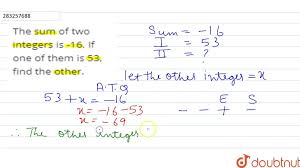 283257688
The sum of two
integers is -16. If
one of them is 53,
find the other.
Sum = -16
I = 53
II = ?
let the other integer = x
A.T.Q
53 + x = -16
x = -16 - 53
x = -69
E S
- - + -
∴ The other integer
doubtnut